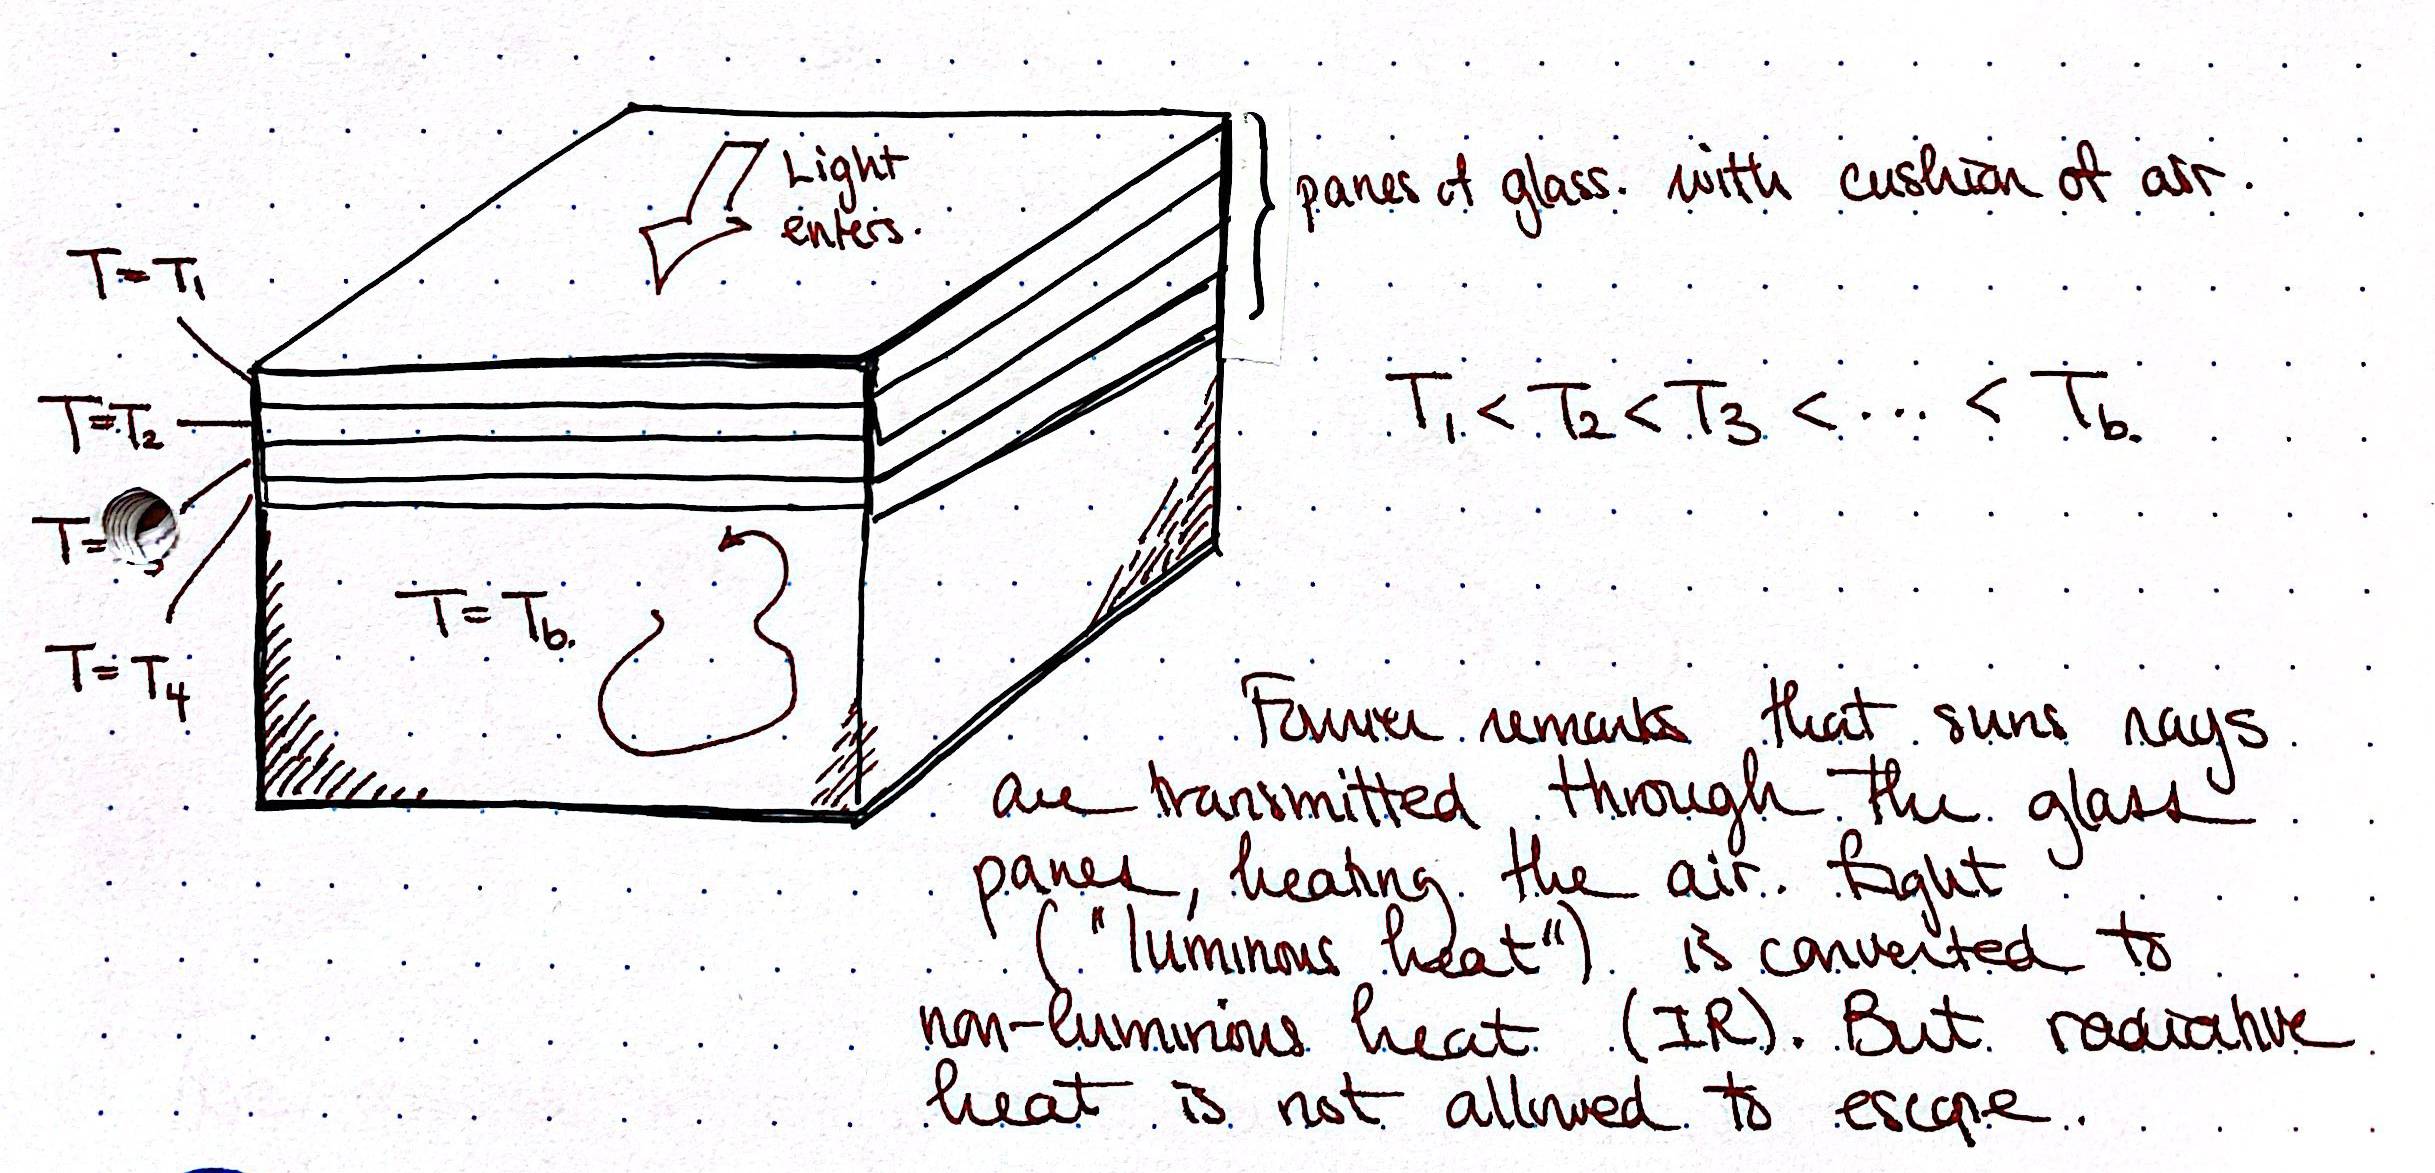 Light
enters.
panes of glass. with cushion of air.
T=T₁
T=T₂
T=
T=T₄
T=T_b.
T₁ < T₂ < T₃ < ... < T_b.
Fourier remarks that suns rays
are transmitted through the glass
panes, heating the air. Light
("luminous heat") is converted to
non-luminous heat (IR). But radiative
heat is not allowed to escape.